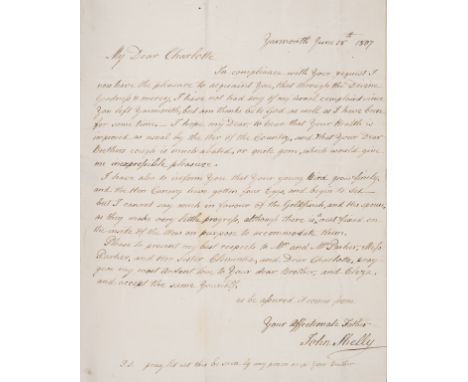 Yarmouth June 18th 1807
My Dear Charlotte
In compliance with Your request I
now have the pleasure to acquaint You, that through the Divine
Goodness & mercy, I have not had any of my usual complaint since
You left Yarmouth, but am thanks be to God as well as I have been
for some time — I hope, my Dear, to hear that Your Health is
improved as usual by the Air of the Country, and that Your Dear
Brothers cough is much abated, or quite gone, which would give
me inexpressible pleasure.
I have also to inform You that Your young Bird grow finely,
and the Hen Canary have gotten four Eggs, and begin to Set —
but I cannot say much in favour of the Goldfinch, and his spouse,
as they make very little progress, although there is a nest fixed on
the inside of the on purpose to accommodate them.
Please to present my best respects to Mr and Mrs Parker, Miss
Parker, and Her Sister and Dear Charlotte, pray
give my most Ardent love to Your dear Brother, and Eliza,
and accept the same Yourself,
as be assured it comes from
Your Affectionate Father
John
P.S. pray let not this be seen by any person but Your Brother